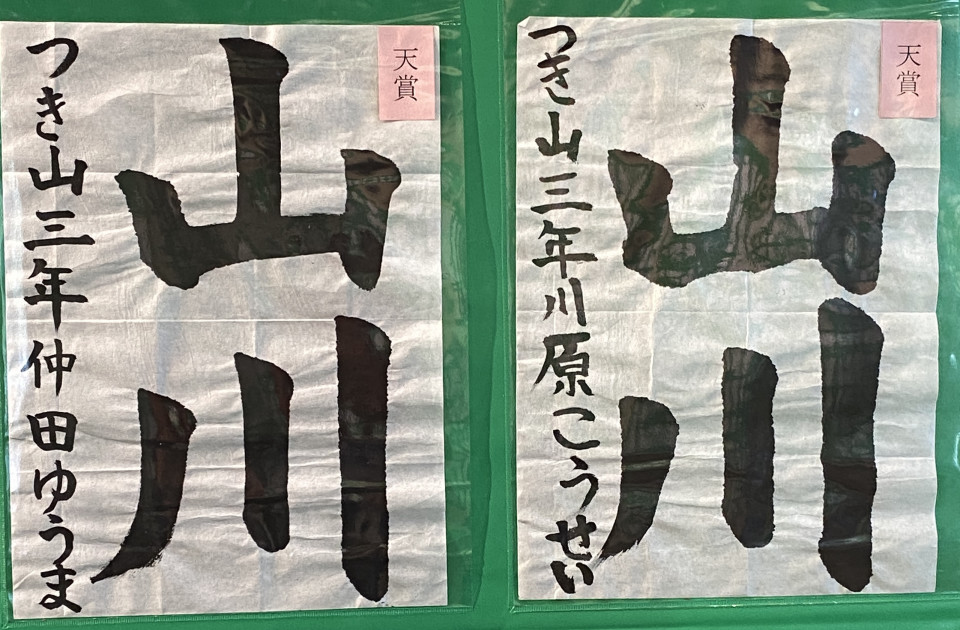 天賞
山川
つき山三年仲田ゆうま
天賞
山川
つき山三年川原こうせい